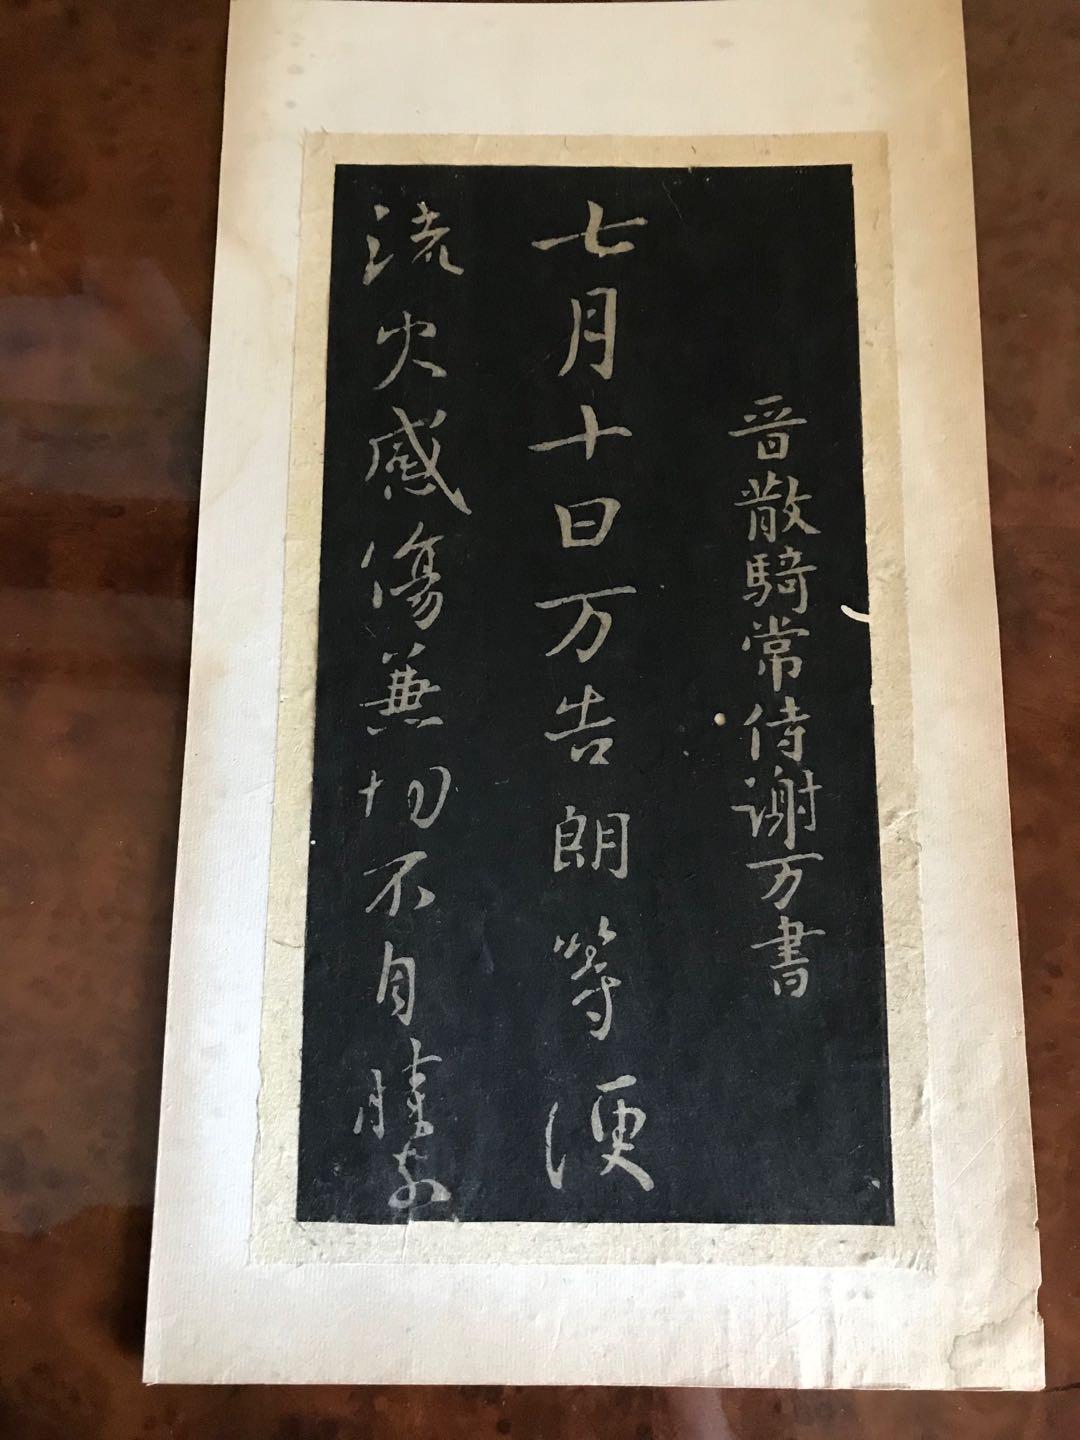 晋散騎常侍谢万書
七月十日万告朗等便
流火感傷兼切不自勝奈